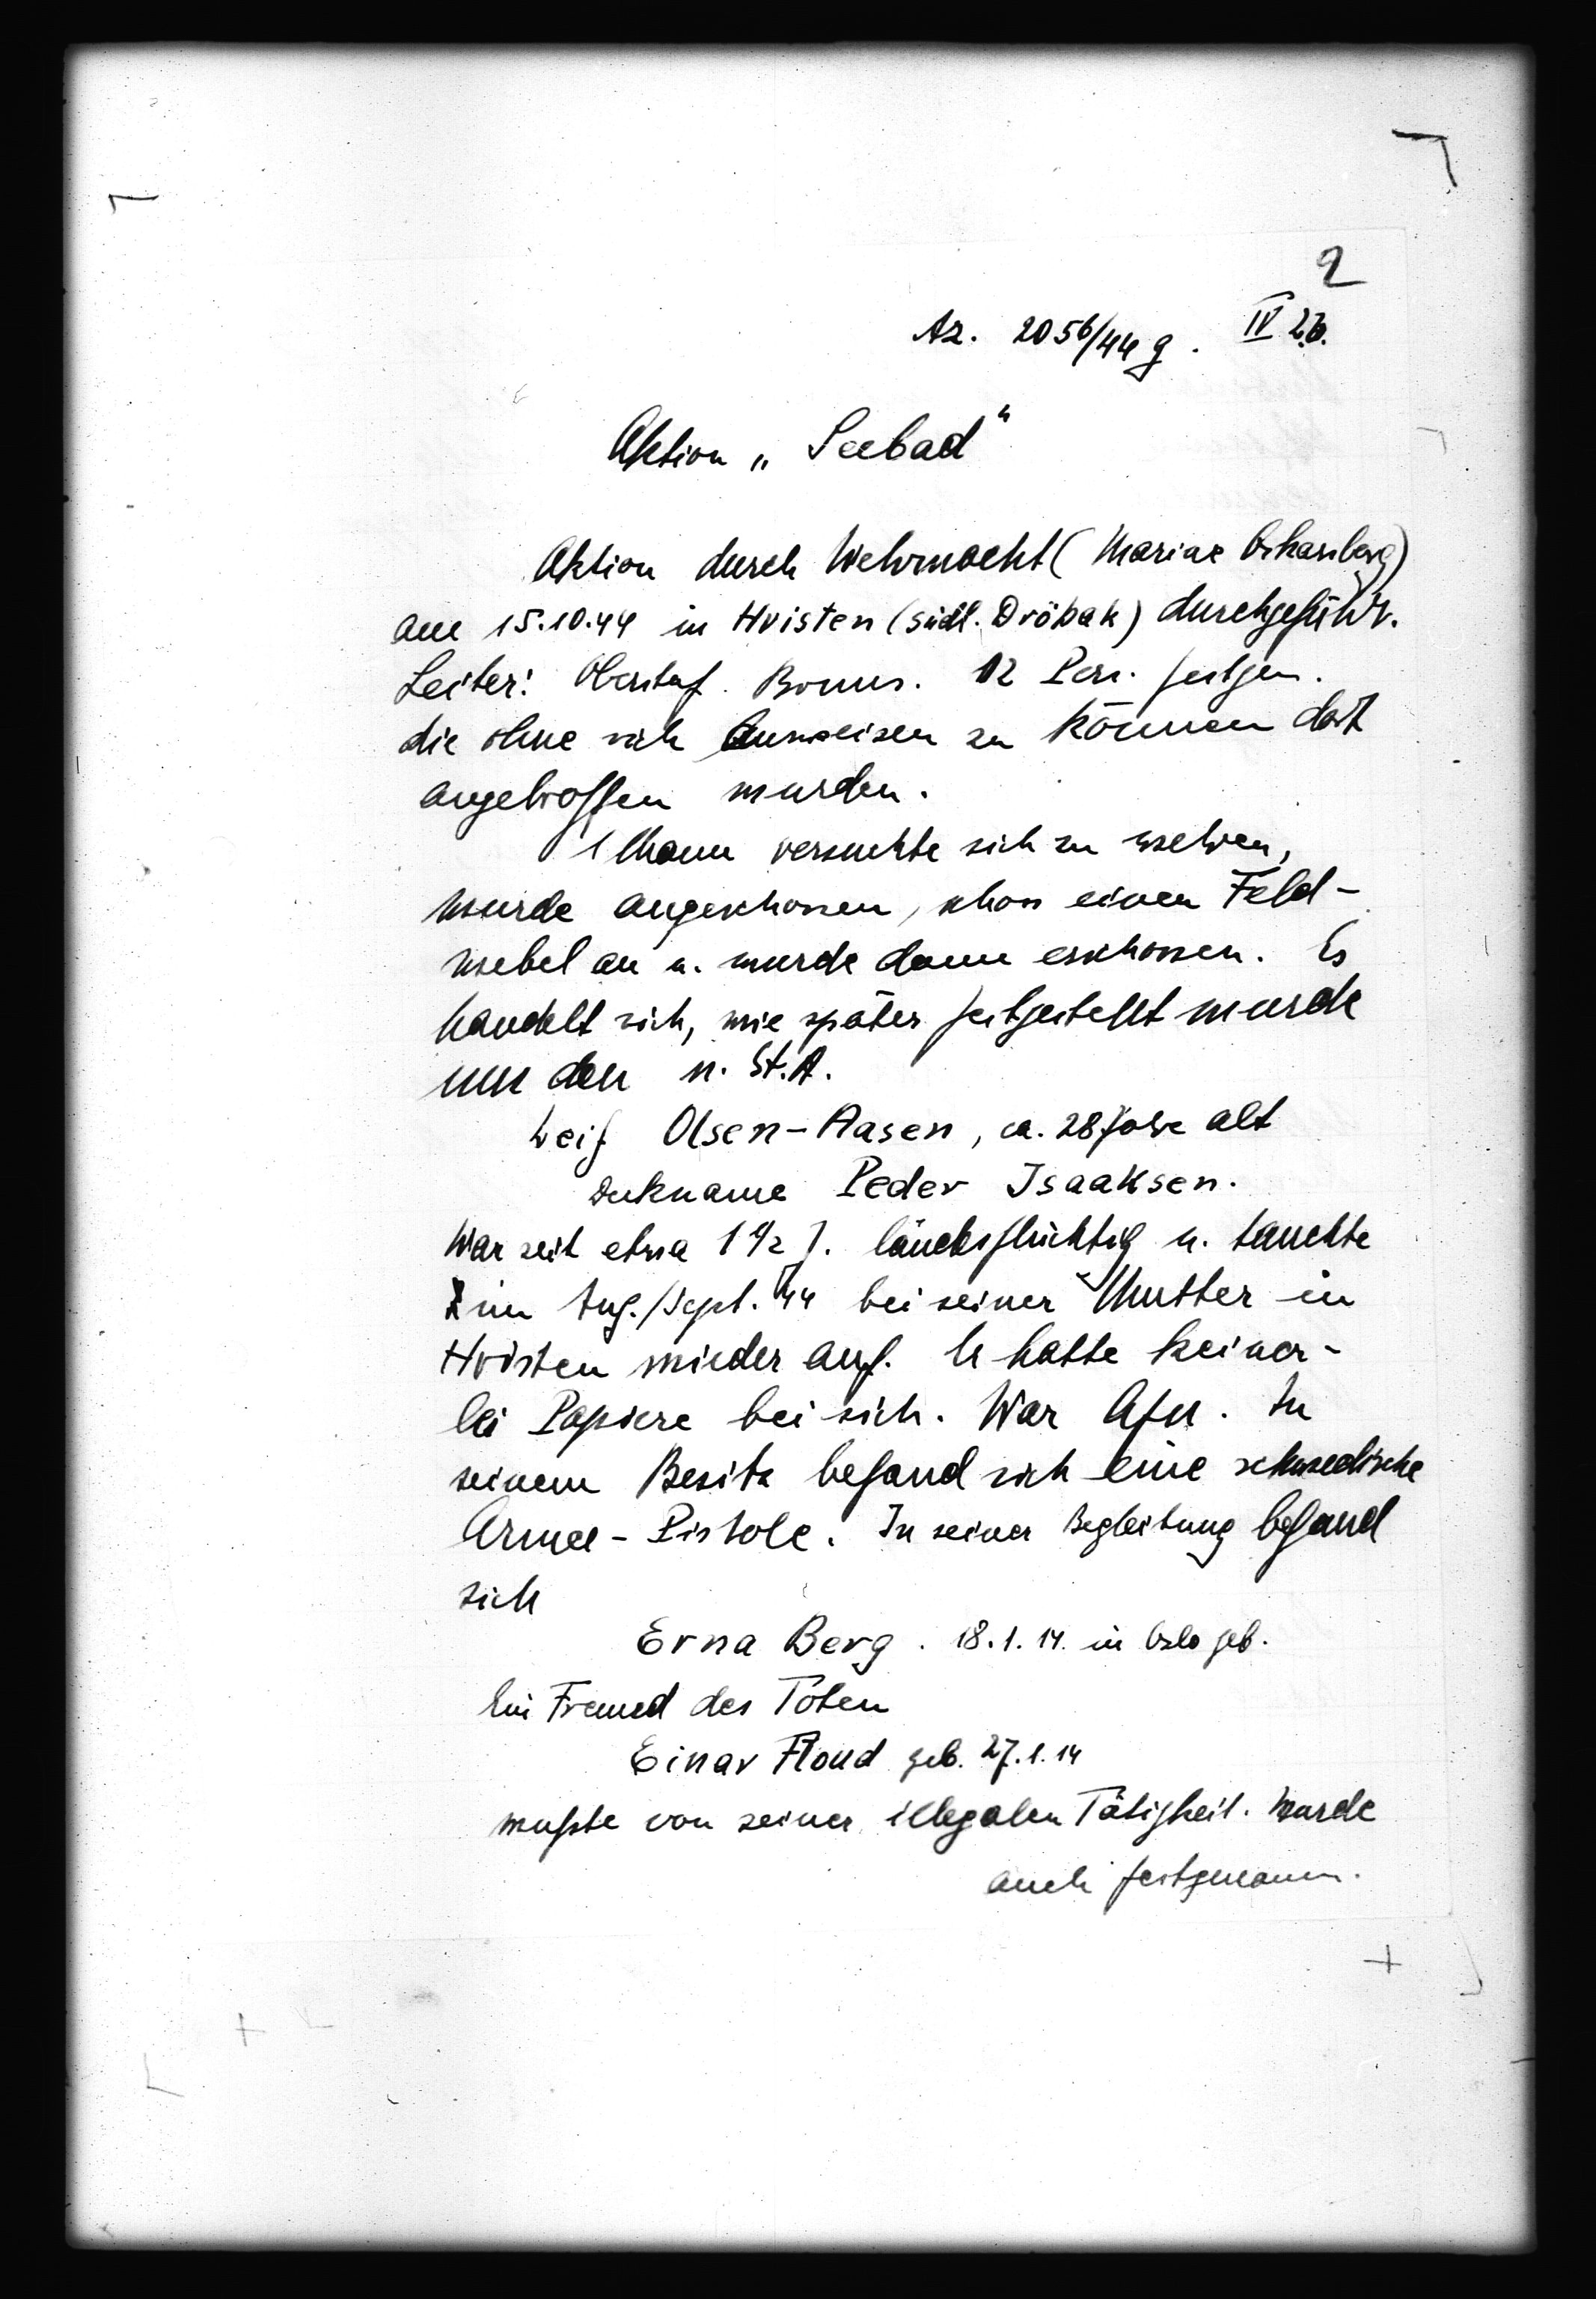 2
Az. 2056/44 g. IV 2b.
Aktion „Seebad“
Aktion durch Wehrmacht (Marine Oskarsborg)
am 15.10.44 in Hvisten (südl. Dröbak) durchgeführt.
Leiter: Oberstuf. Bomus. 12 Pers. festgen.
die ohne sich ausweisen zu können dort
angetroffen wurden.
1 Mann versuchte sich zu wehren,
wurde angeschossen, schoss einen Feld-
webel an u. wurde dann erschossen. Es
handelt sich, wie später festgestellt wurde
um den n. St.A.
Leif Olsen-Aasen, ca. 28 Jahre alt
Deckname Peder Isaaksen.
War seit etwa 1 1/2 J. landesflüchtig u. tauchte
im Aug./Sept. 44 bei seiner Mutter in
Hvisten wieder auf. Er hatte keiner-
lei Papiere bei sich. War . In
seinem Besitz befand sich eine schwedische
Armee-Pistole. In seiner Begleitung befand
sich
Erna Berg. 18.1.14. in Oslo geb.
Ein Freund des Toten
Einar Floud geb. 27.1.14
wußte von seiner illegalen Tätigkeit. Wurde
auch festgenomm.